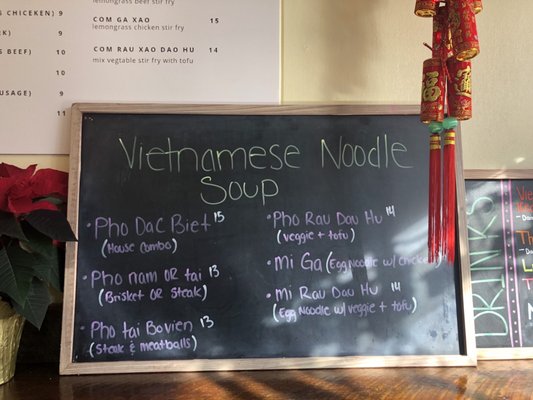 lemongrass beef stir fry
9
COM GA XAO 15
lemongrass chicken stir fry
9
BEEF) 9
COM RAU XAO DAO HU 14
mix vegtable stir fry with tofu
10
9
10
Vietnamese Noodle
Soup
• Pho Dac Biet 15
(House Combo)
• Pho nam OR tai 13
(Brisket OR Steak)
• Pho tai Bo vien 13
(Steak & meatballs)
• Pho Rau Dau Hu 14
(veggie + tofu)
• Mi Ga (Egg Noodle w/ chicken)
• Mi Rau Dau Hu 14
(Egg Noodle w/ veggie + tofu)
DRINKS